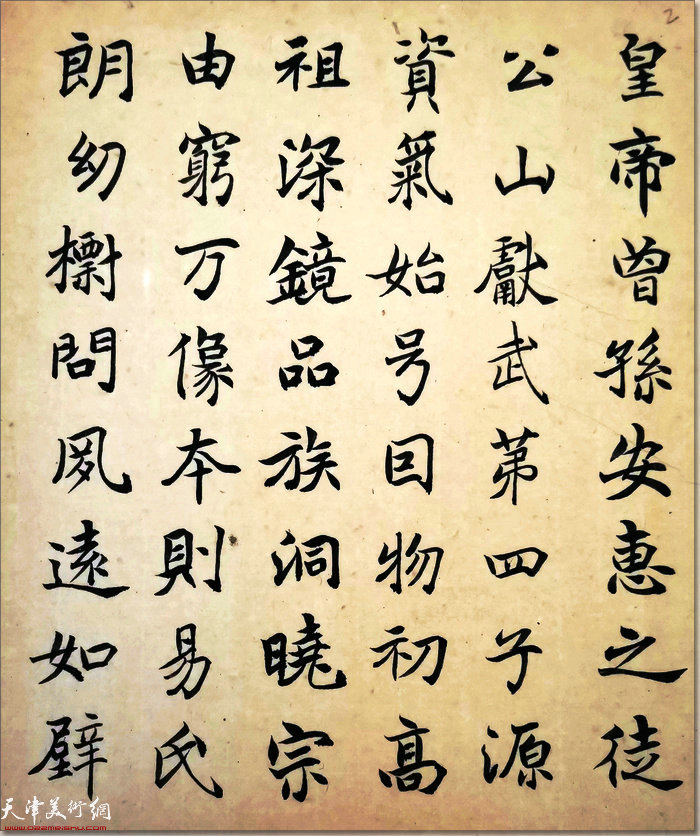 2
皇帝曾孫安惠之徒
公山獻武苐四子源
資氣始号囙物初高
祖深鏡品族洞曉宗
由窮万像本則易氏
朗幼㯹問夙遠如壁
天津美術網
www.022meishu.com